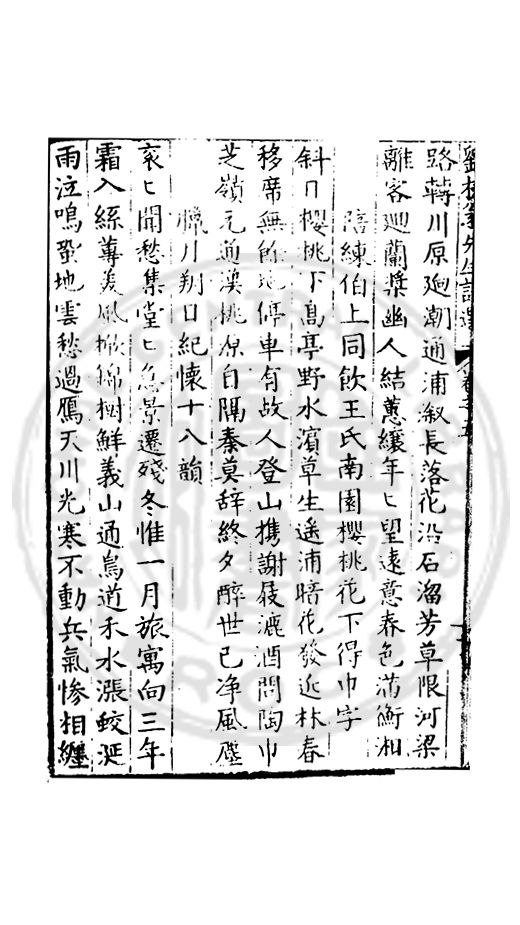 路轉川原迴潮通浦漵長落花沿石溜芳草限河梁
離客迴蘭槳幽人結蕙纕年匕望遠意春色滿衡湘
陪練伯上同飲王氏南園櫻桃花下得巾字
斜日櫻桃下髙亭野水濵草生遙浦暗花發近林春
移席無餘地停車有故人登山携謝屐漉酒問陶巾
芝嶺元通漢桃原自隔秦莫辞終夕醉世已净風塵
臘月朔日紀懷十八韻
衮匕聞愁集堂匕急景遷殘冬惟一月旅寓向三年
霜入絲蓴羙風掀錦樹鮮義山通鳥道禾水漲蛟涎
雨泣鳴蛩地雲愁過鴈天川光寒不動兵氣惨相纏